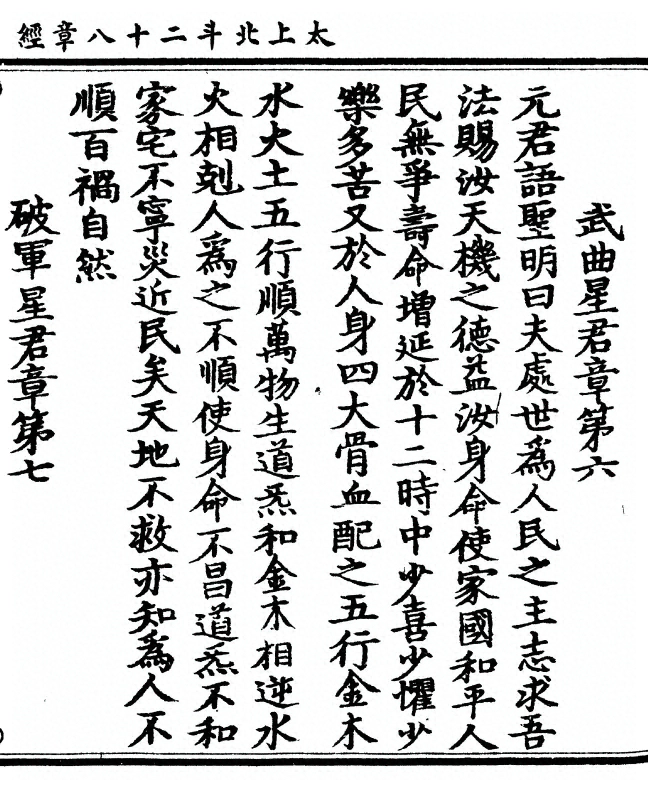 太上北斗二十八章經
武曲星君章第六
元君語聖明曰夫處世爲人民之主志求吾
法賜汝天機之德益汝身命使家國和平人
民無爭壽命增延於十二時中少喜少懼少
樂多苦又於人身四大骨血配之五行金木
水火土五行順萬物生道炁和金木相逆水
火相剋人爲之不順使身命不昌道炁不和
家宅不寧災近民矣天地不救亦知爲人不
順百禍自然
破軍星君章第七